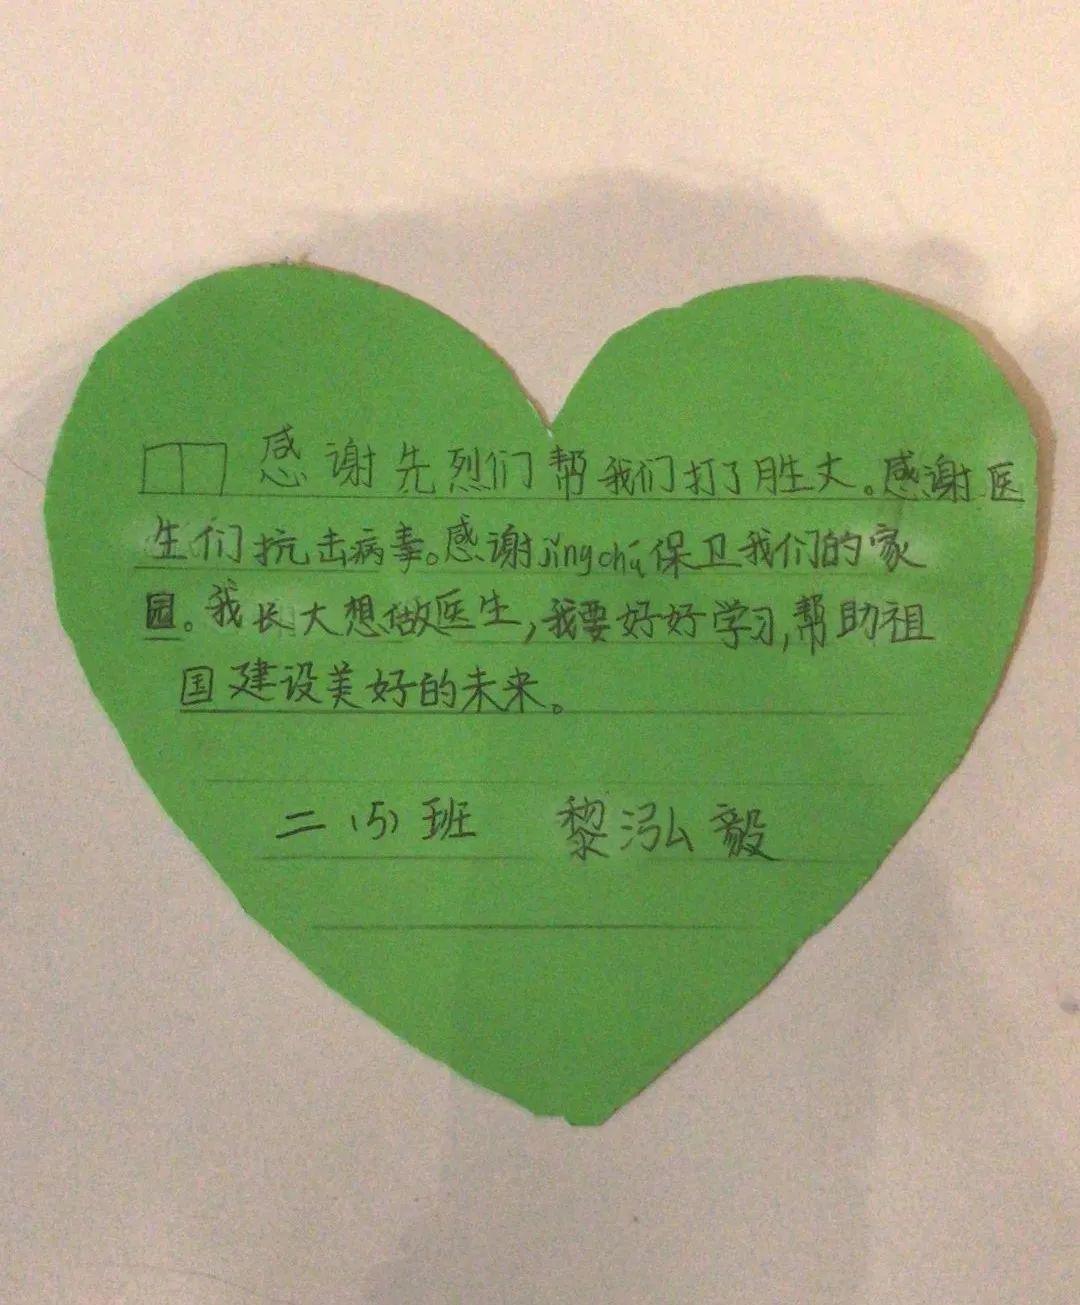 感谢先烈们帮我们打了胜丈。感谢医
生们抗击病毒。感谢jǐngchá保卫我们的家
园。我长大想做医生,我要好好学习,帮助祖
国建设美好的未来。
二(5)班 黎泓毅